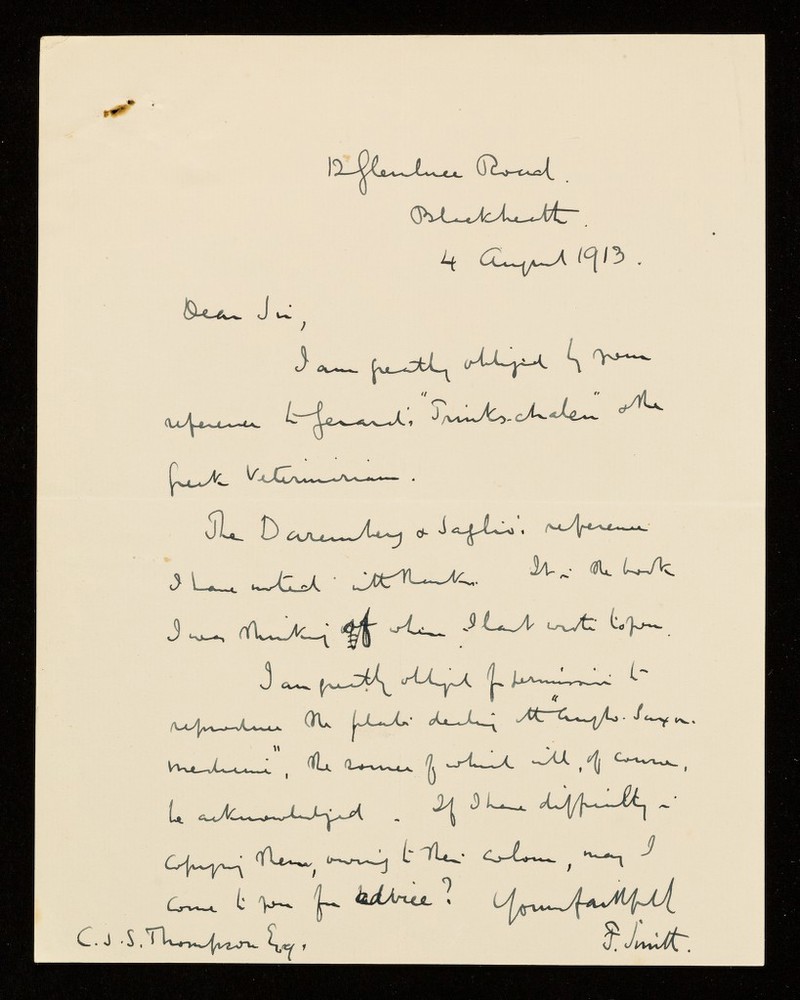 12 Glenluce Road.
Blackheath.
4 August 1913.
Dear Sir,
I am greatly obliged by your
reference to Gerard's "Trinks-chalen" & the
Greek Veterinarian.
The Daremberg & Saglio's reference
I have noted with thanks. It is the book
I was thinking of when I last wrote to you.
I am greatly obliged for permission to
reproduce the plates dealing with "Anglo-Saxon
medicine", the source of which will, of course,
be acknowledged. If I have difficulty in
copying them, owing to their colour, may I
come to you for advice? Yours faithfully
C. J. S. Thompson Esq. F. Smith.